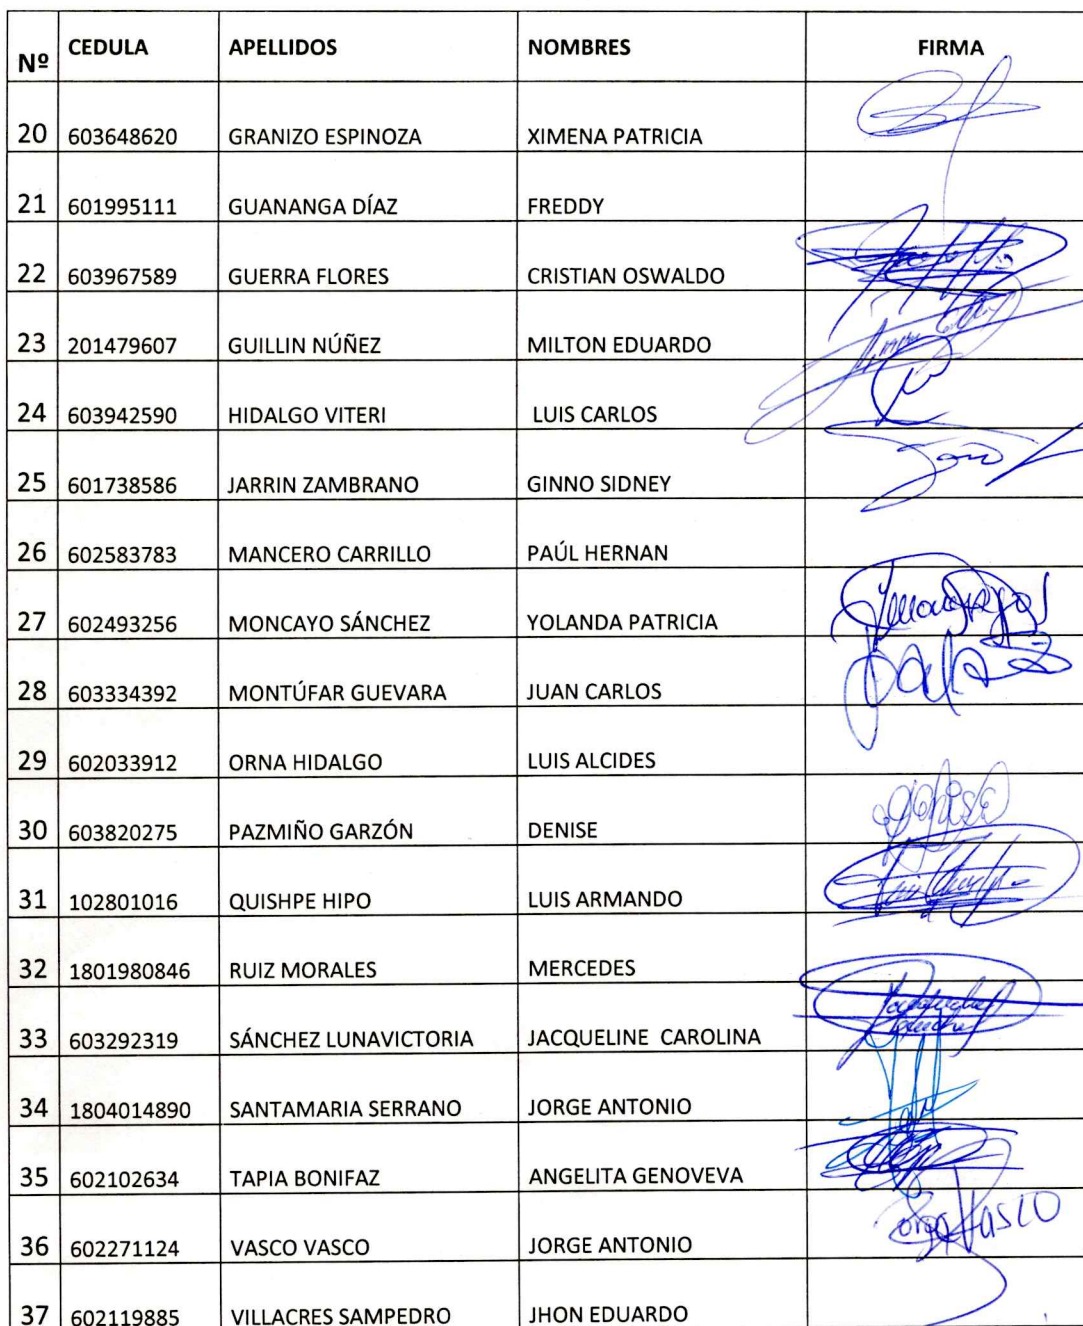 Nº CEDULA APELLIDOS NOMBRES FIRMA
20 603648620 GRANIZO ESPINOZA XIMENA PATRICIA
21 601995111 GUANANGA DÍAZ FREDDY
22 603967589 GUERRA FLORES CRISTIAN OSWALDO
23 201479607 GUILLIN NÚÑEZ MILTON EDUARDO
24 603942590 HIDALGO VITERI LUIS CARLOS
25 601738586 JARRIN ZAMBRANO GINNO SIDNEY
26 602583783 MANCERO CARRILLO PAÚL HERNAN
27 602493256 MONCAYO SÁNCHEZ YOLANDA PATRICIA
28 603334392 MONTÚFAR GUEVARA JUAN CARLOS
29 602033912 ORNA HIDALGO LUIS ALCIDES
30 603820275 PAZMIÑO GARZÓN DENISE
31 102801016 QUISHPE HIPO LUIS ARMANDO
32 1801980846 RUIZ MORALES MERCEDES
33 603292319 SÁNCHEZ LUNAVICTORIA JACQUELINE CAROLINA
34 1804014890 SANTAMARIA SERRANO JORGE ANTONIO
35 602102634 TAPIA BONIFAZ ANGELITA GENOVEVA
36 602271124 VASCO VASCO JORGE ANTONIO Jorge Vasco
37 602119885 VILLACRES SAMPEDRO JHON EDUARDO